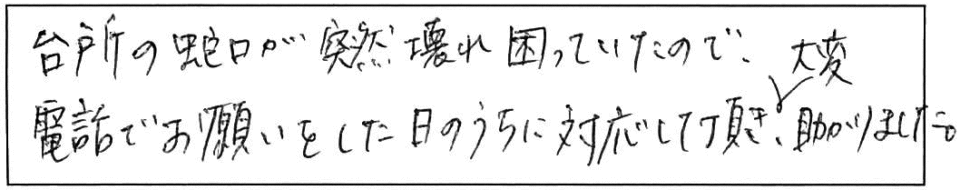 台所の蛇口が突然壊れ困っていたので、
電話でお願いをした日のうちに対応して頂き、大変助かりました。